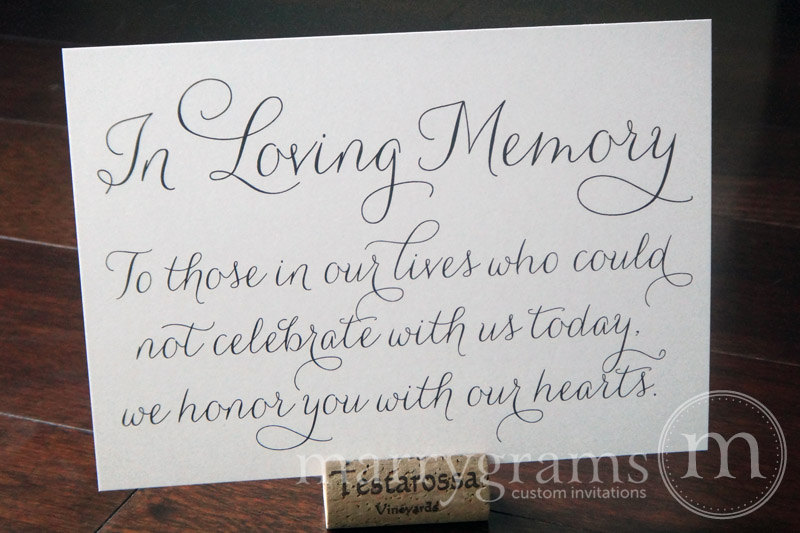 In Loving Memory
To those in our lives who could
not celebrate with us today,
we honor you with our hearts.
marrygrams
custom invitations
m
Testarossa
Vineyards